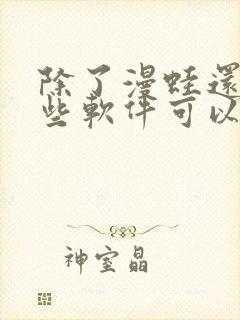 除了漫蛙還
些軟件可以
神室晶